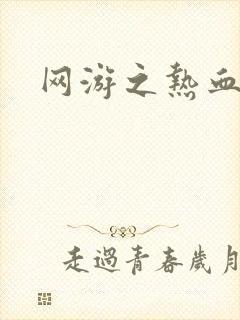 网游之熱血
走過青春歲月